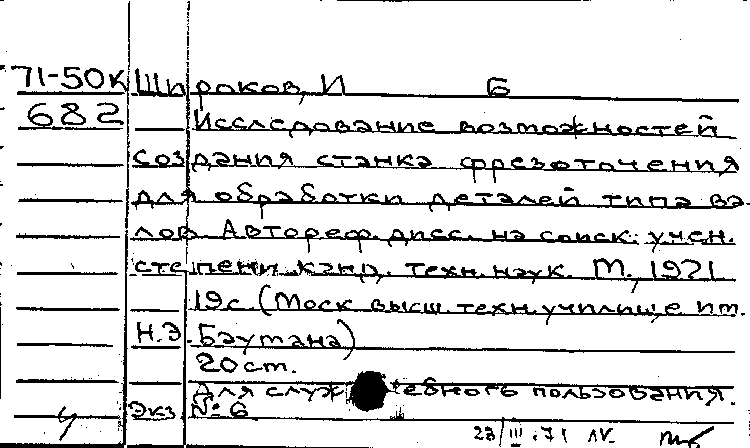 71-50к Широков, И Б
682 Исследование возможностей
создания станка фрезоточения
для обработки деталей типа ва-
лов. Автореф. дисс. на соиск. учен.
степени канд. техн. наук. М., 1971
19с (Моск высш. техн. училище им.
Н.Э. Баумана)
20 см.
Для служебного пользования.
Экз. № 6
23/III-71